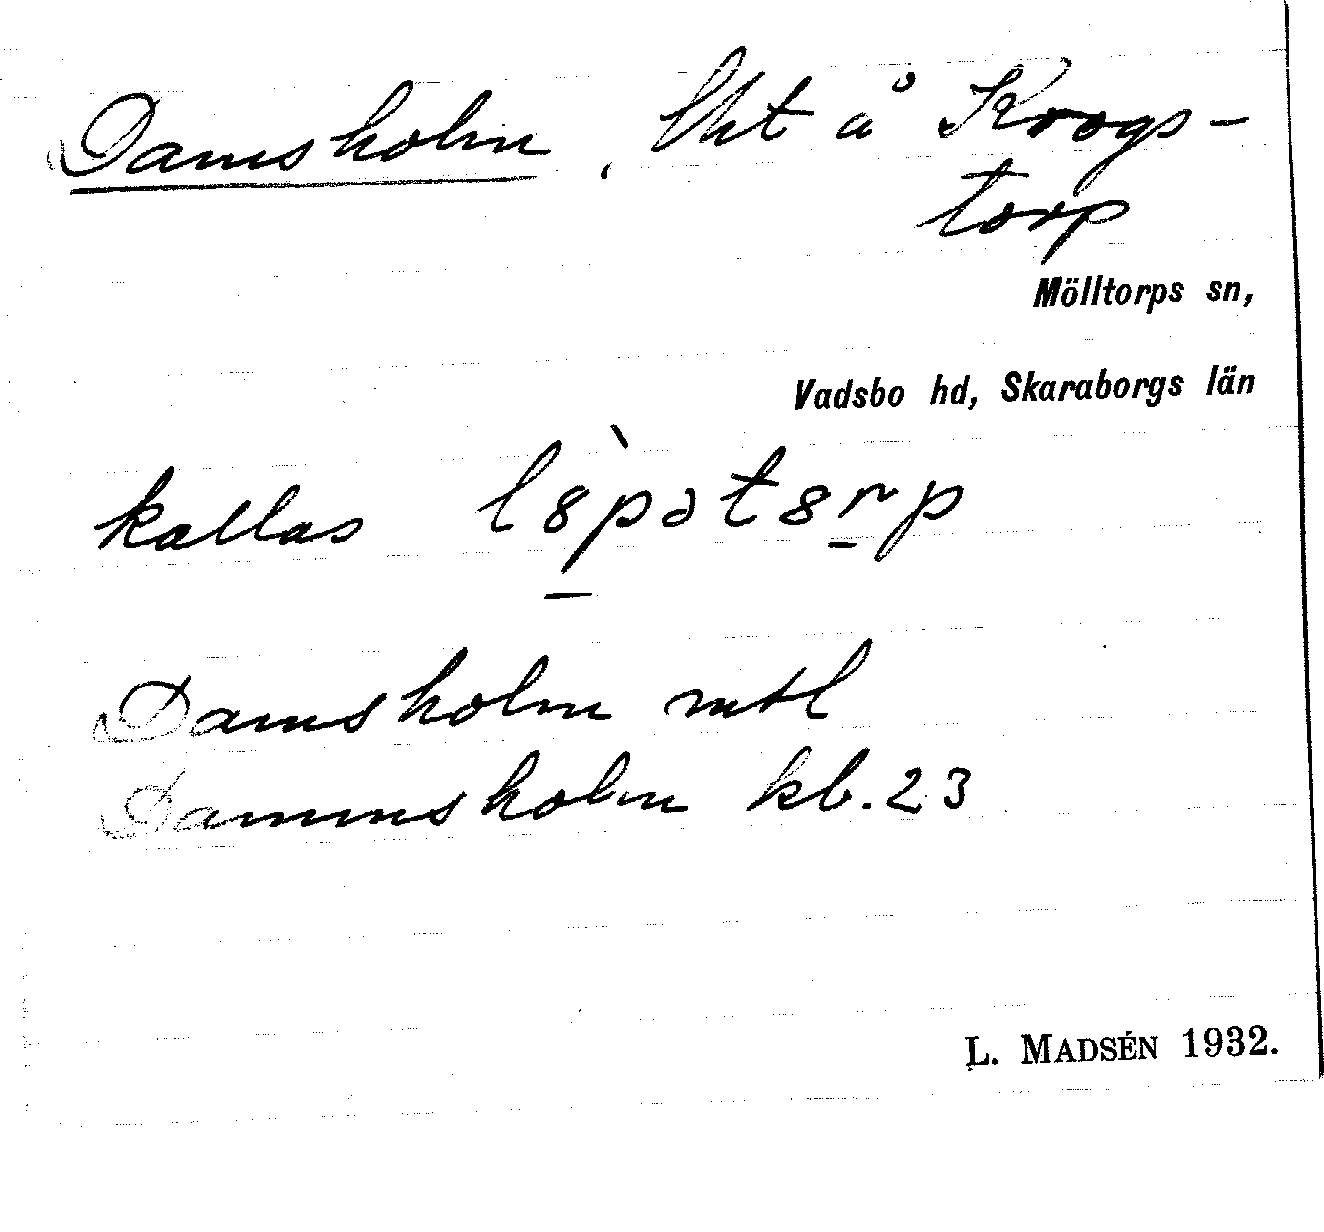 Damsholm, lht å Krogs-
torp
Mölltorps sn,
Vadsbo hd, Skaraborgs län
kallas l8̀pət8rp
Damsholm mtl
Dammsholm kb. 23
L. MADSÉN 1932.